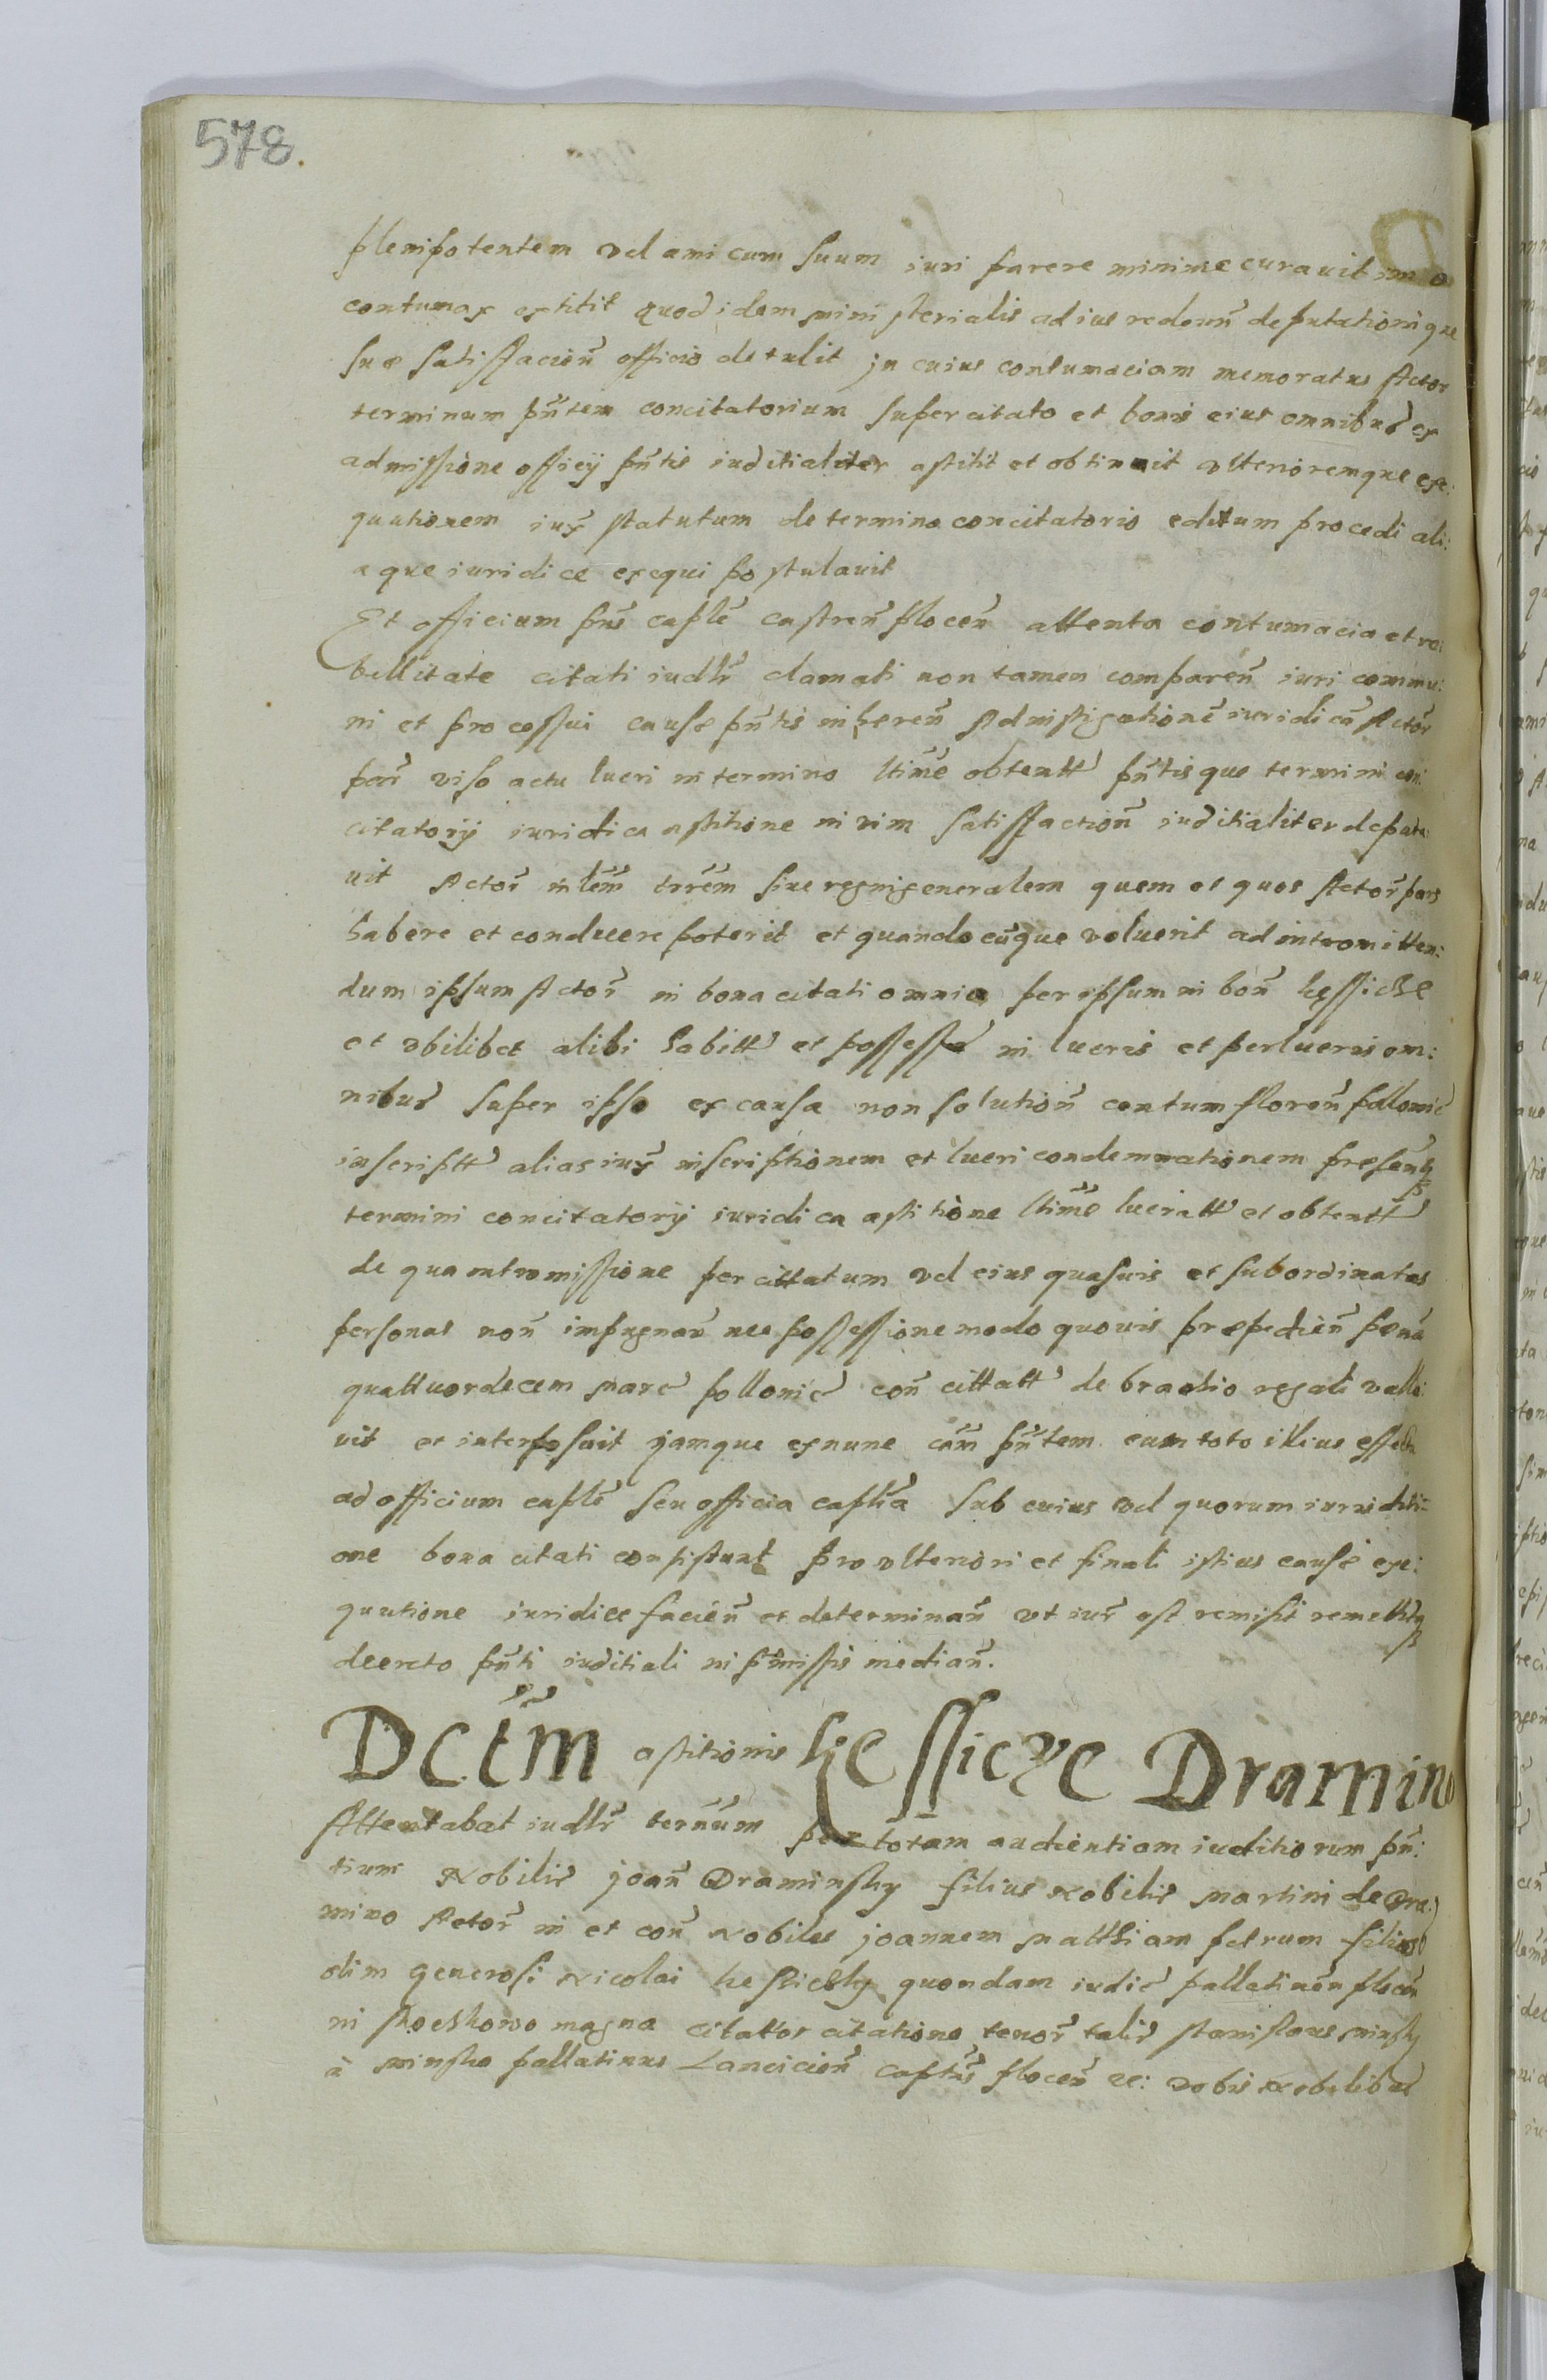 578.
plenipotentem vel amicum suum iuri parere minime curavit imo
contumax extitit quod idem ministerialis ad ius redeun̄ deputationique
sue satisfacien̄ officio detulit in cuius contumaciam memoratus Actor
terminum pn̄tem concitatorium super citato et bonis eius omnibus ex
admissione officÿ pn̄tis iuditialiter astitit et obtinuit ulterioremque exe:
qutionem iux statutum de termino concitatorio editum procedi ali:
aque iuridice exequi postulavit
Et officium pn̄s caplē castren̄ plocen̄ attenta contumacia et re:
bellitate citati iudlr̄ clamati non tamen comparen̄ iuri commu:
ni et processui cause pn̄tis inheren̄ Ad instigationē iuridicā Actor̄
par̄ viso actu lucri in termino ltim̄e obtentt pn̄tisque termini con:
citatorÿ iuridica astitione in vim satisfaction̄ iuditialiter deputa:
vit Actor̄ mlēm trrēm sive regni generalem quem et quos Actor̄ pars
habere et conducere poterit et quandocunque voluerit ad intromitten:
dum ipsum Actor̄ in bona citati omnia per ipsum in bon̄ kęssicze
et ubilibet alibi habitt et possessa in lucris et perlucris om:
nibus super ipso ex causa non solution̄ centum floren̄ pollonic
inscriptt alias iux inscriptionem et lucri condemnationem presentis
termini concitatorÿ iuridica astitione ltim̄e lucratt et obtentt
de qua intromissione per cittatum vel eius quasvis et subordinatas
personas non̄ impugnan̄ nec possessione modo quovis prepedien̄ penā
quattuordecem marc pollonic con̄ cittatt de brachio regali valla:
vit et interposuit jamque exnunc cām pn̄tem cum toto illius effectu
ad officium caplē seu officia caplīa sub cuius vel quorum iurisditi-
one bona citati consistunt pro ulteriori et finali istius cause exe:
qutione iuridice facien̄ et determinan̄ ut iur̄ est remisit remittitq
decreto pn̄ti iuditiali in pr̄missis median̄.
Dctm̄ astitionis kęssicze Dramino
Attentabat iudlr̄ ternūm per totam audientiam iuditiorum pn̄:
tium Nobilis joan̄ Draminsky filius Nobilis martini de Dra:
mino Actor̄ in et con̄ Nobiles joannem matthiam petrum filios
olim generosi Nicolai kessickÿ quondam iudic pallatinen̄ plocen̄
in skoczkowo magna citattos citatione tenor̄ talis stanislaus minsky
à minsko pallatinus Lancicien̄ captūs plocen̄ ec: vobis Nobilibus